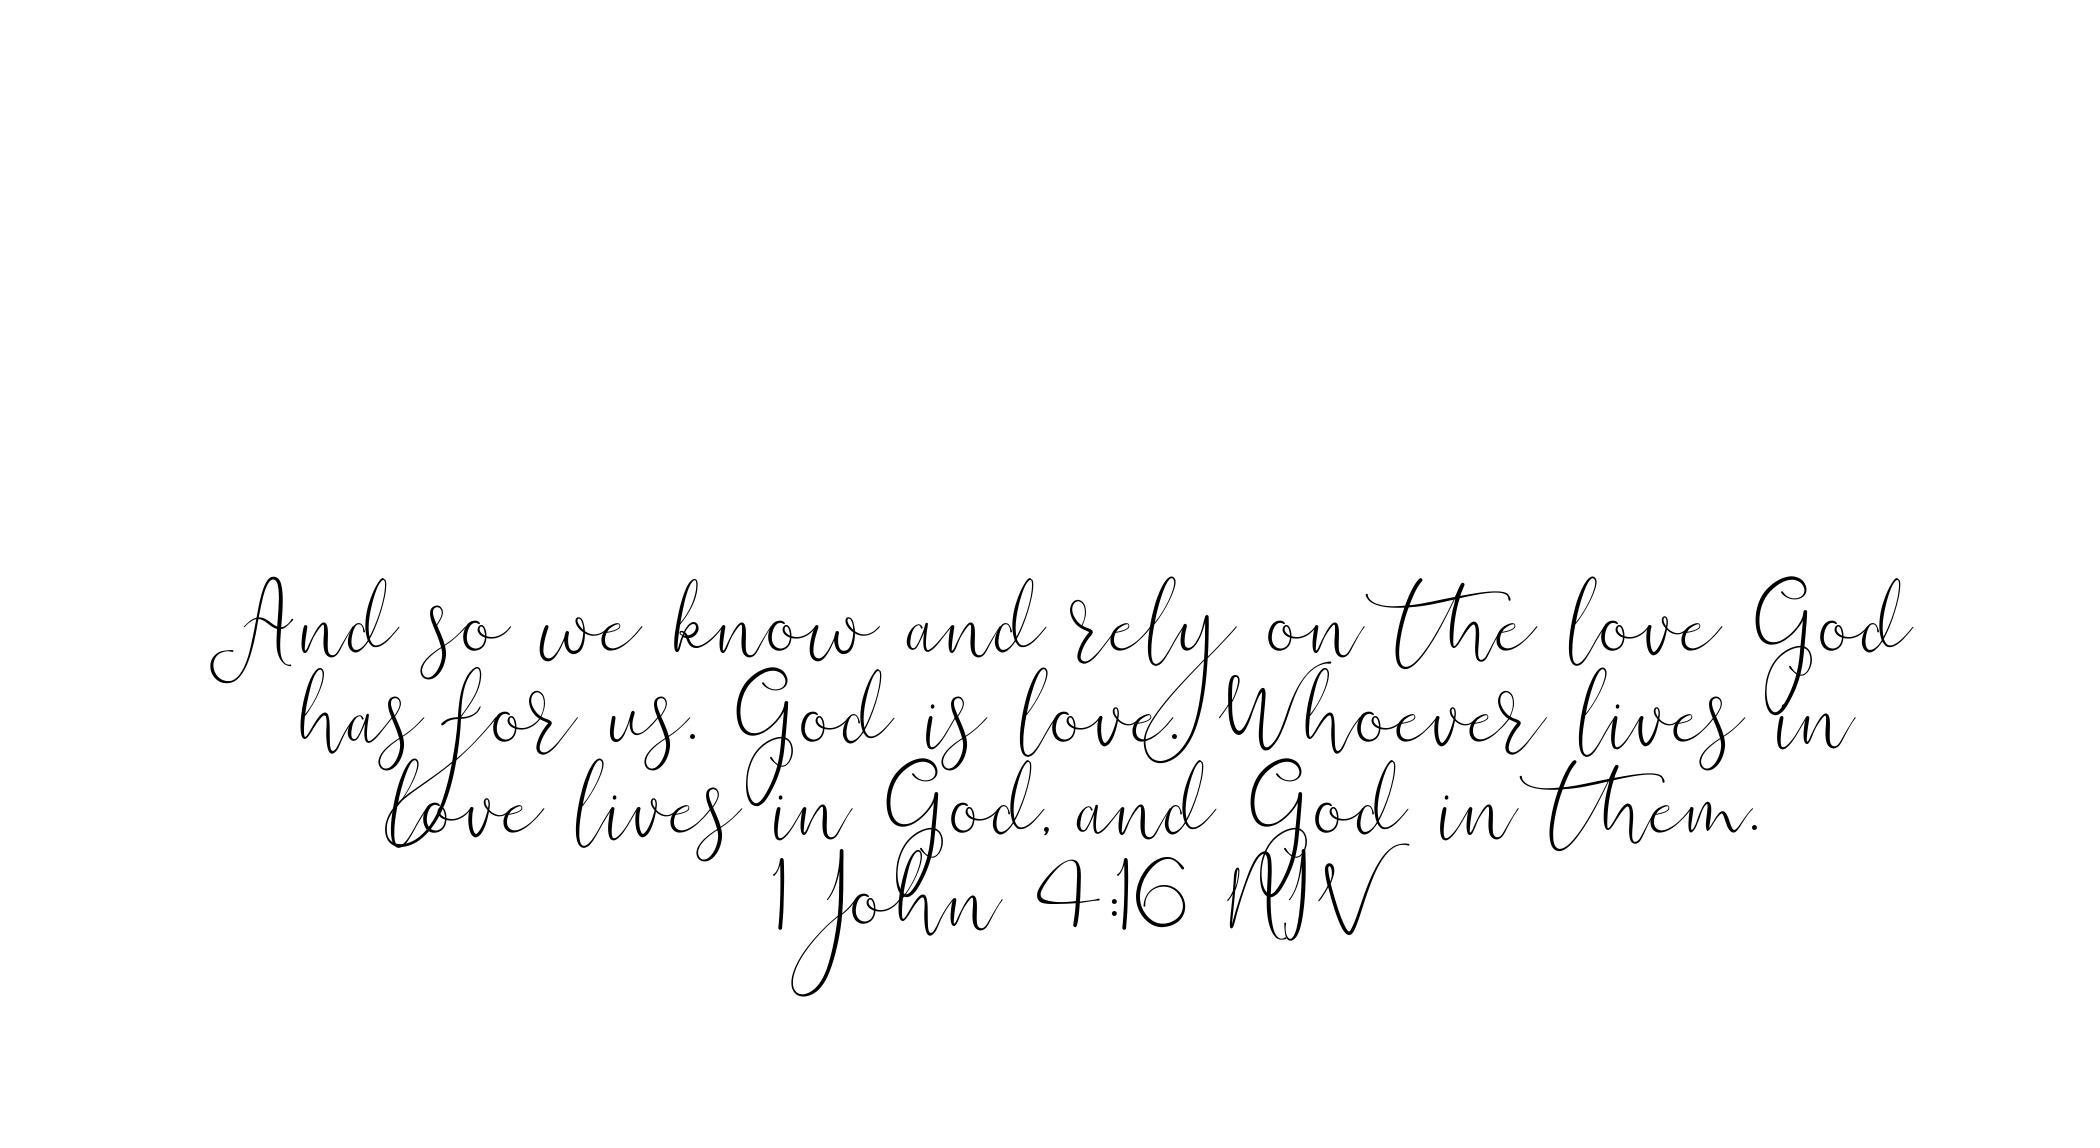 And so we know and rely on the love God
has for us. God is love. Whoever lives in
love lives in God, and God in them.
1 John 4:16 NIV